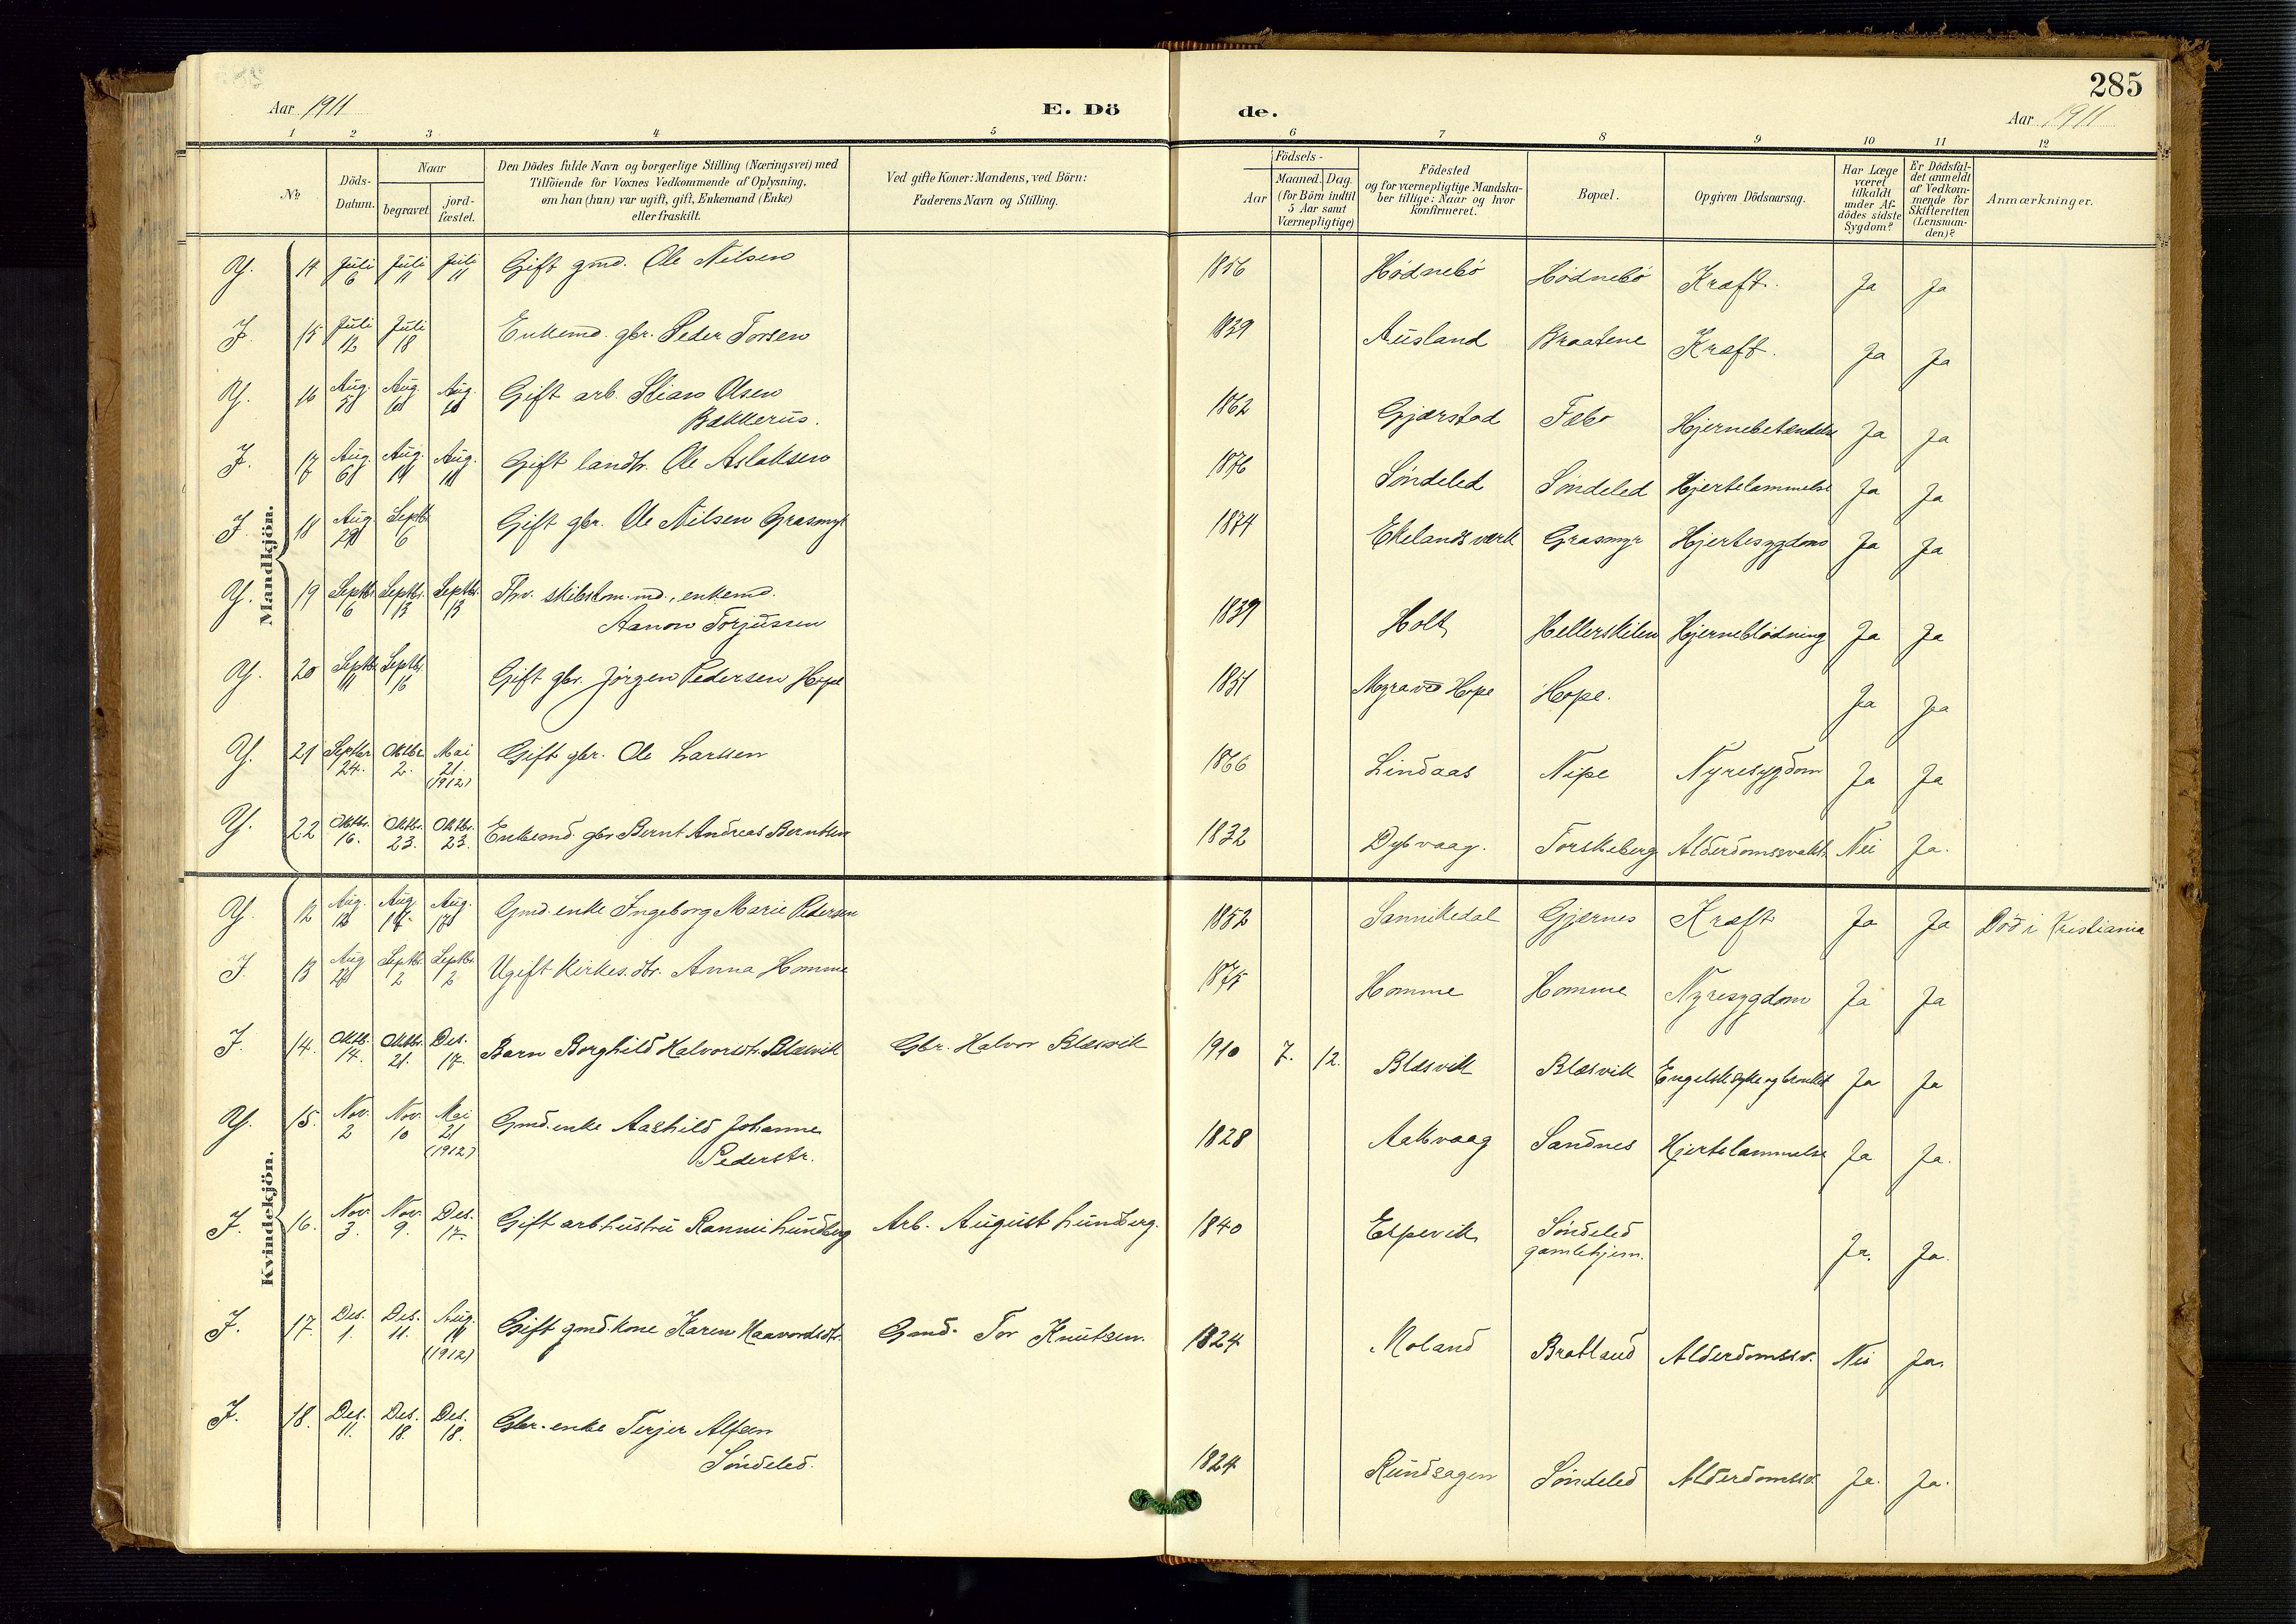 285
Aar 1911
E. Dö
de.
Aar 1911
1 2 3 4 5 6 7 8 9 10 11 12
No
Döds-
Datum.
Naar
begravet
jord-
fæstet.
Den Dödes fulde Navn og borgerlige Stilling (Næringsvei) med
Tilföiende for Voxnes Vedkommende af Oplysning,
om han (hun) var ugift, gift, Enkemand (Enke)
eller fraskilt.
Ved gifte Koner: Mandens, ved Börn:
Faderens Navn og Stilling.
Födsels-
Aar
Maaned. Dag.
(for Börn indtil
5 Aar samt
Værnepligtige)
Födested
og for værnepligtige Mandska-
ber tillige: Naar og hvor
konfirmeret.
Bopæl.
Opgiven Dödsaarsag.
Har Læge
været
tilkaldt
under Af-
dödes sidste
Sygdom?
Er Dödsfal-
det anmeldt
af Vedkom-
mende for
Skifteretten
(Lensman-
den)?
Anmærkninger.
Mandkjön.
Y. 14 Juli 6 Juli 11 Juli 11 Gift gmd. Ole Nilsen 1856 Hødnebø Hødnebø Kræft. Ja Ja
I. 15 Juli 12 Juli 18 Enkemd. gbr. Peder Torsen 1839 Ausland Braatene Kræft. Ja Ja
Y. 16 Aug. Aug. Aug. Gift arb. Stian Olsen
Bakkerus. 1862 Gjerstad Febo Hjernebetændelse Ja Ja
I. 17 Aug. Aug. Aug. Gift landh. Ole Aslaksen 1876 Søndeled Søndeled Hjertelammelse Ja Ja
I. 18 Aug. Septbr. 6 Gift gbr. Ole Nilsen Grasmyr 1874 Ekelandsverk Grasmyr Hjertesygdom Ja Ja
Y. 19 Septbr. 6 Septbr. 13 Septbr. 13 Fhv. skibstøm.md., enkemd.
Aanon Torjussen 1839 Holt Hellerskilen Hjerneblødning Ja Ja
Y. 20 Septbr. 11 Septbr. 16 Gift gbr. Jörgen Pedersen Hope 1851 Myra v. Hope Hope. Ja Ja
Y. 21 Septbr. 24. Oktbr. 2. Mai 21. (1912) Gift gbr. Ole Larssen 1866 Lindaas Nipe Nyresygdom Ja Ja
Y. 22 Oktbr. 16. Oktbr. 23. Oktbr. 23. Enkemd. gbr Bernt Andreas Berntsen 1832 Dybvaag. Torskeberg Alderdomssvakh. Nei Ja.
Kvindekjön.
Y. 12 Aug. 12 Aug. 17 Aug. 17 Gmd. enke Ingeborg Marie Pedersen 1852 Sannikedal Gjernes Kræft Ja Ja Død i Kristiania
I. 13 Aug Septbr. 2 Septbr. 2 Ugift Kirkes. dtr. Anna Homme 1875 Homme Homme Nyresygdom Ja Ja
I. 14. Oktb. 14. Oktbr. 21. Des. 17. Barn Borghild Halvorsdtr. Blæsvik Gbr. Halvor Blæsvik 1910 7. 12. Blæsvik Blæsvik Engelsk syke og bronkit Ja Ja
Y. 15. Nov. 2 Nov. 10 Mai 21 (1912) Gmd. enke Aashild Johanne
Pederstr. 1828 Aakvaag Sandnes Hjertelammelse Ja Ja.
I. 16. Nov. 3. Nov. 9. Des. 17. Gift arb hustru Rannei Lundberg Arb. August Lundberg. 1840 Espevik Søndeled
gamlehjem. Ja. Ja.
I. 17. Des. 1. Des. 11. Aug. 11 (1912) Gift gmd. kone Karen Haavorsdtr. Gmd. Tor Knutsen. 1824 Moland Bratland Alderdomssv. Nei Ja.
I. 18. Des. 11. Des. 18. Des. 18. Gbr. enke Terjer Alfsen
Søndeled. 1824 Rundsagen Søndeled Alderdomssv. Ja. Ja.